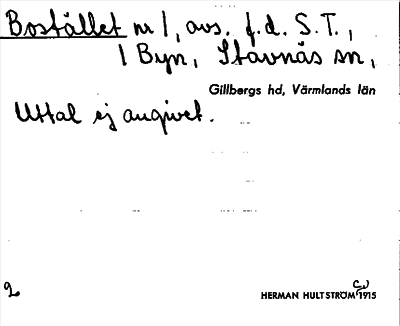 Bostället nr 1, avs. f.d. S.T.,
1 Byn, Stavnäs sn,
Gillbergs hd, Värmlands län
Uttal ej angivet.
2
HERMAN HULTSTRÖM 1915